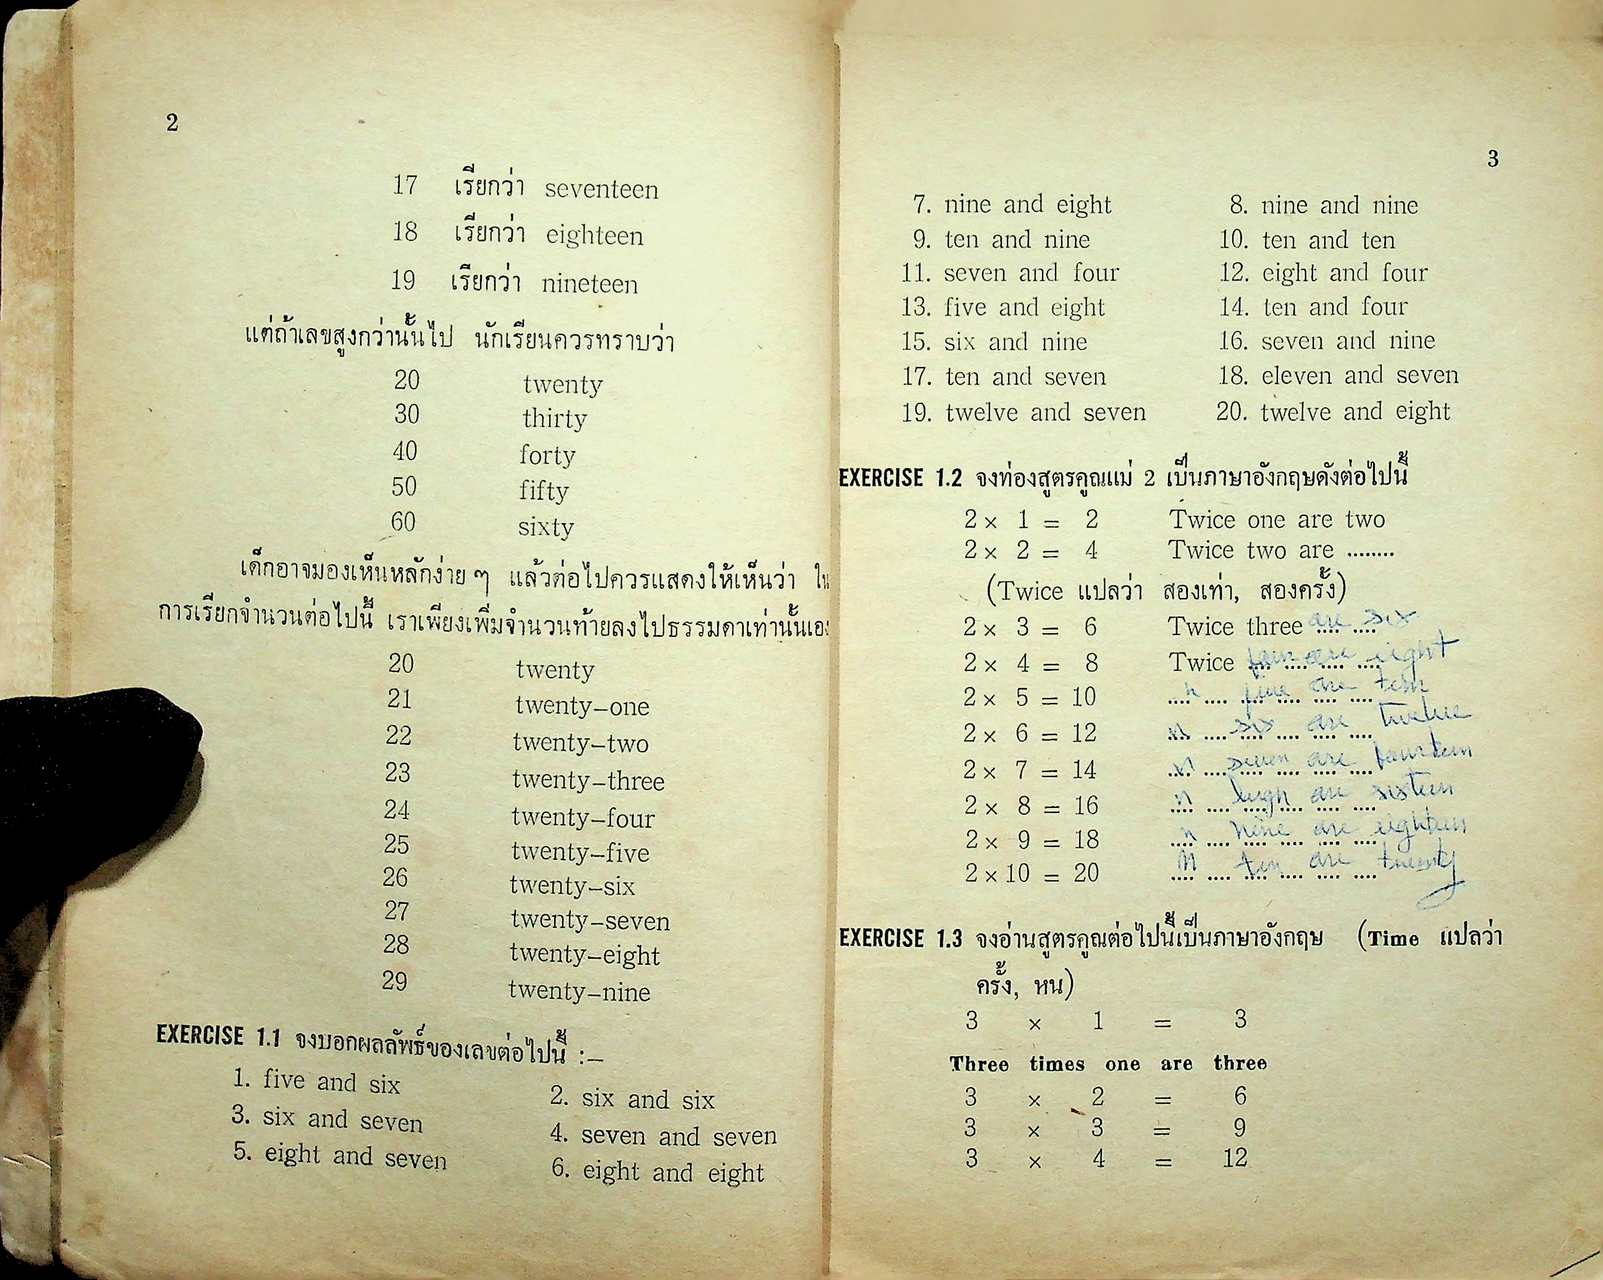 2
17 เรียกว่า seventeen
18 เรียกว่า eighteen
19 เรียกว่า nineteen
แต่ถ้าเลขสูงกว่านั้นไป นักเรียนควรทราบว่า
20 twenty
30 thirty
40 forty
50 fifty
60 sixty
เด็กอาจมองเห็นหลักง่าย ๆ แล้วต่อไปควรแสดงให้เห็นว่า ใน
การเรียกจำนวนต่อไปนี้ เราเพียงเพิ่มจำนวนท้ายลงไปธรรมดาเท่านั้นเอง
20 twenty
21 twenty-one
22 twenty-two
23 twenty-three
24 twenty-four
25 twenty-five
26 twenty-six
27 twenty-seven
28 twenty-eight
29 twenty-nine
EXERCISE 1.1 จงบอกผลลัพธ์ของเลขต่อไปนี้ :–
1. five and six 2. six and six
3. six and seven 4. seven and seven
5. eight and seven 6. eight and eight
3
7. nine and eight 8. nine and nine
9. ten and nine 10. ten and ten
11. seven and four 12. eight and four
13. five and eight 14. ten and four
15. six and nine 16. seven and nine
17. ten and seven 18. eleven and seven
19. twelve and seven 20. twelve and eight
EXERCISE 1.2 จงท่องสูตรคูณแม่ 2 เป็นภาษาอังกฤษดังต่อไปนี้
2 × 1 = 2 Twice one are two
2 × 2 = 4 Twice two are ........
(Twice แปลว่า สองเท่า, สองครั้ง)
2 × 3 = 6 Twice three are six
2 × 4 = 8 Twice four are eight
2 × 5 = 10 " five are ten
2 × 6 = 12 " six are twelve
2 × 7 = 14 " seven are fourteen
2 × 8 = 16 " are sixteen
2 × 9 = 18 " nine are eighteen
2 × 10 = 20 " ten are twenty
EXERCISE 1.3 จงอ่านสูตรคูณต่อไปนี้เป็นภาษาอังกฤษ (Time แปลว่า
ครั้ง, หน)
3 × 1 = 3
Three times one are three
3 × 2 = 6
3 × 3 = 9
3 × 4 = 12